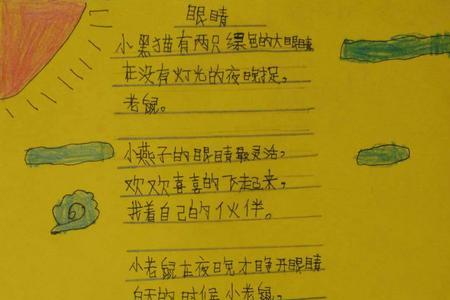 眼睛
小黑猫有两只绿色的大眼睛
在没有灯光的夜晚捉,
老鼠。
小燕子的眼睛最灵活,
欢欢喜喜的飞起来,
找着自己的伙伴。
小老鼠在夜晚才睁开眼睛
白天的时候小老鼠。